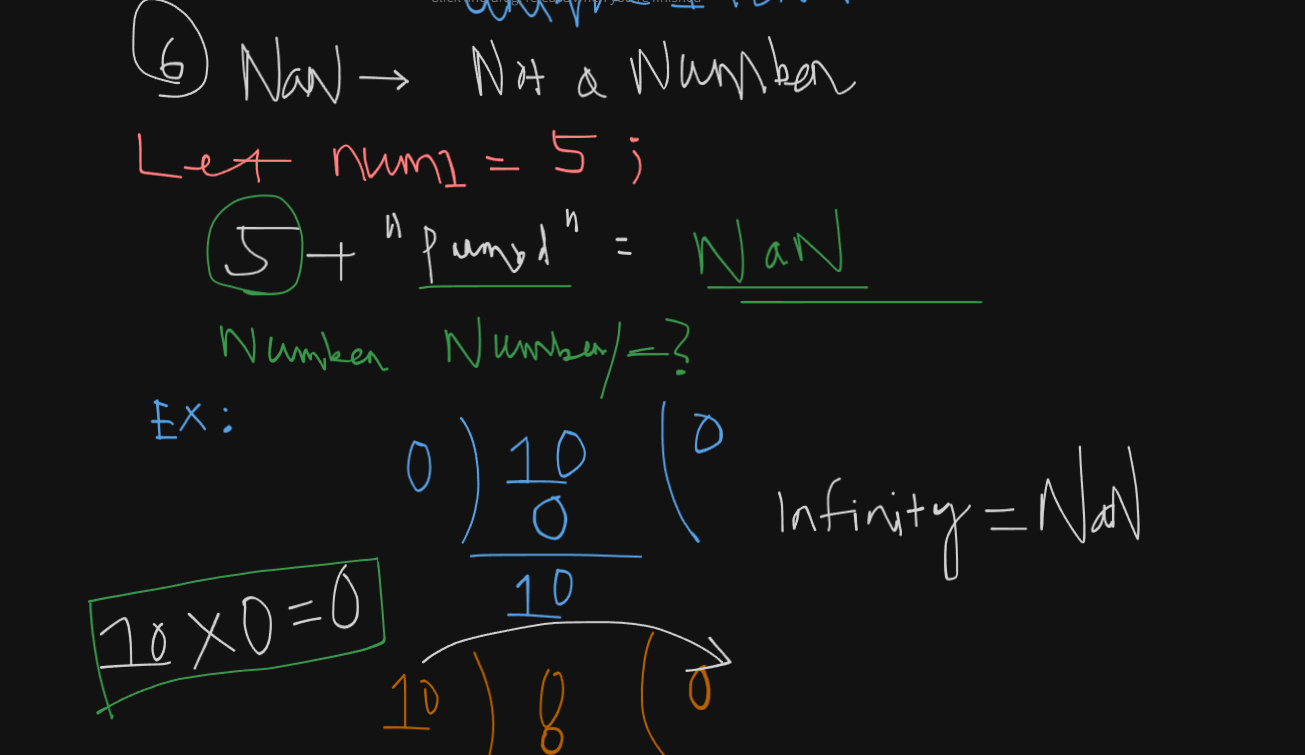 6 NaN → Not a Number
Let num1 = 5 ;
5 + " " = NaN
Number Number/=?
EX:
0 ) 10 ( 0
0
10
Infinity = NaN
10 X 0 = 0
10 ) 0 ( 0
0